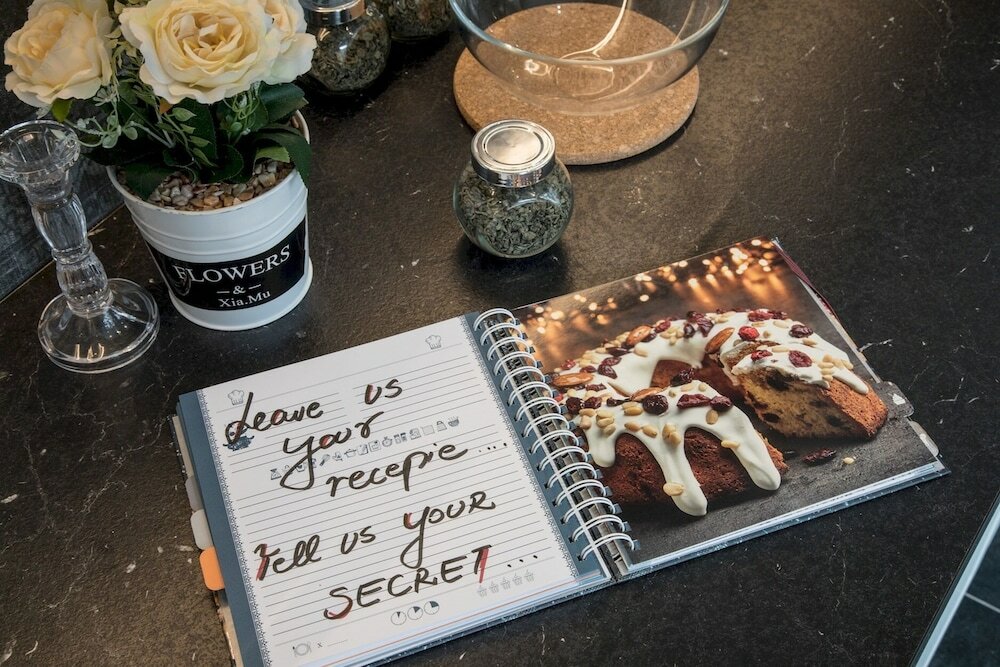 FLOWERS
&
Xia.Mu
Leave us
your
recepie ....
Tell us YOUR
SECRET ...
x